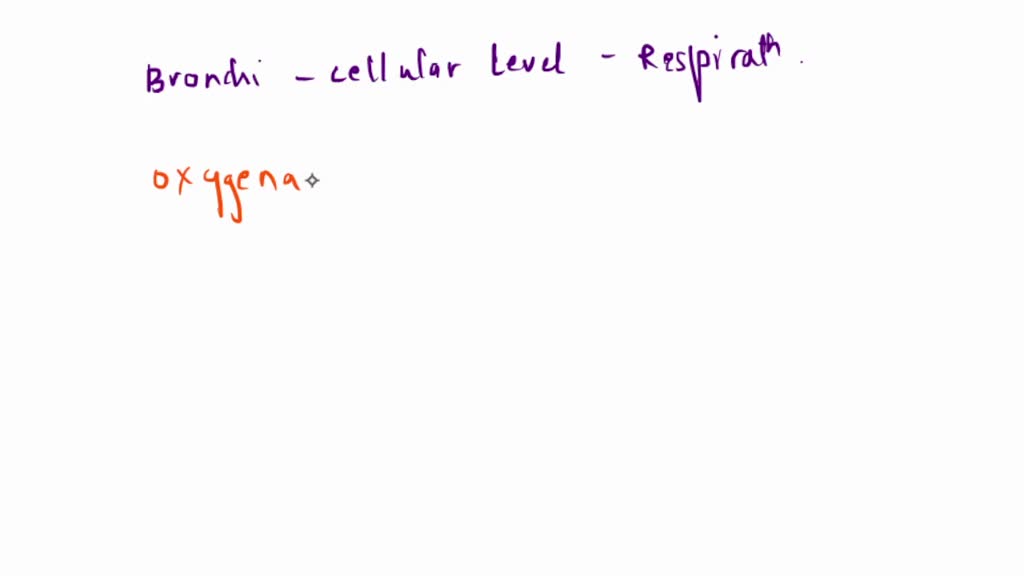 Bronchi - cellular level - Respirath.
oxygena